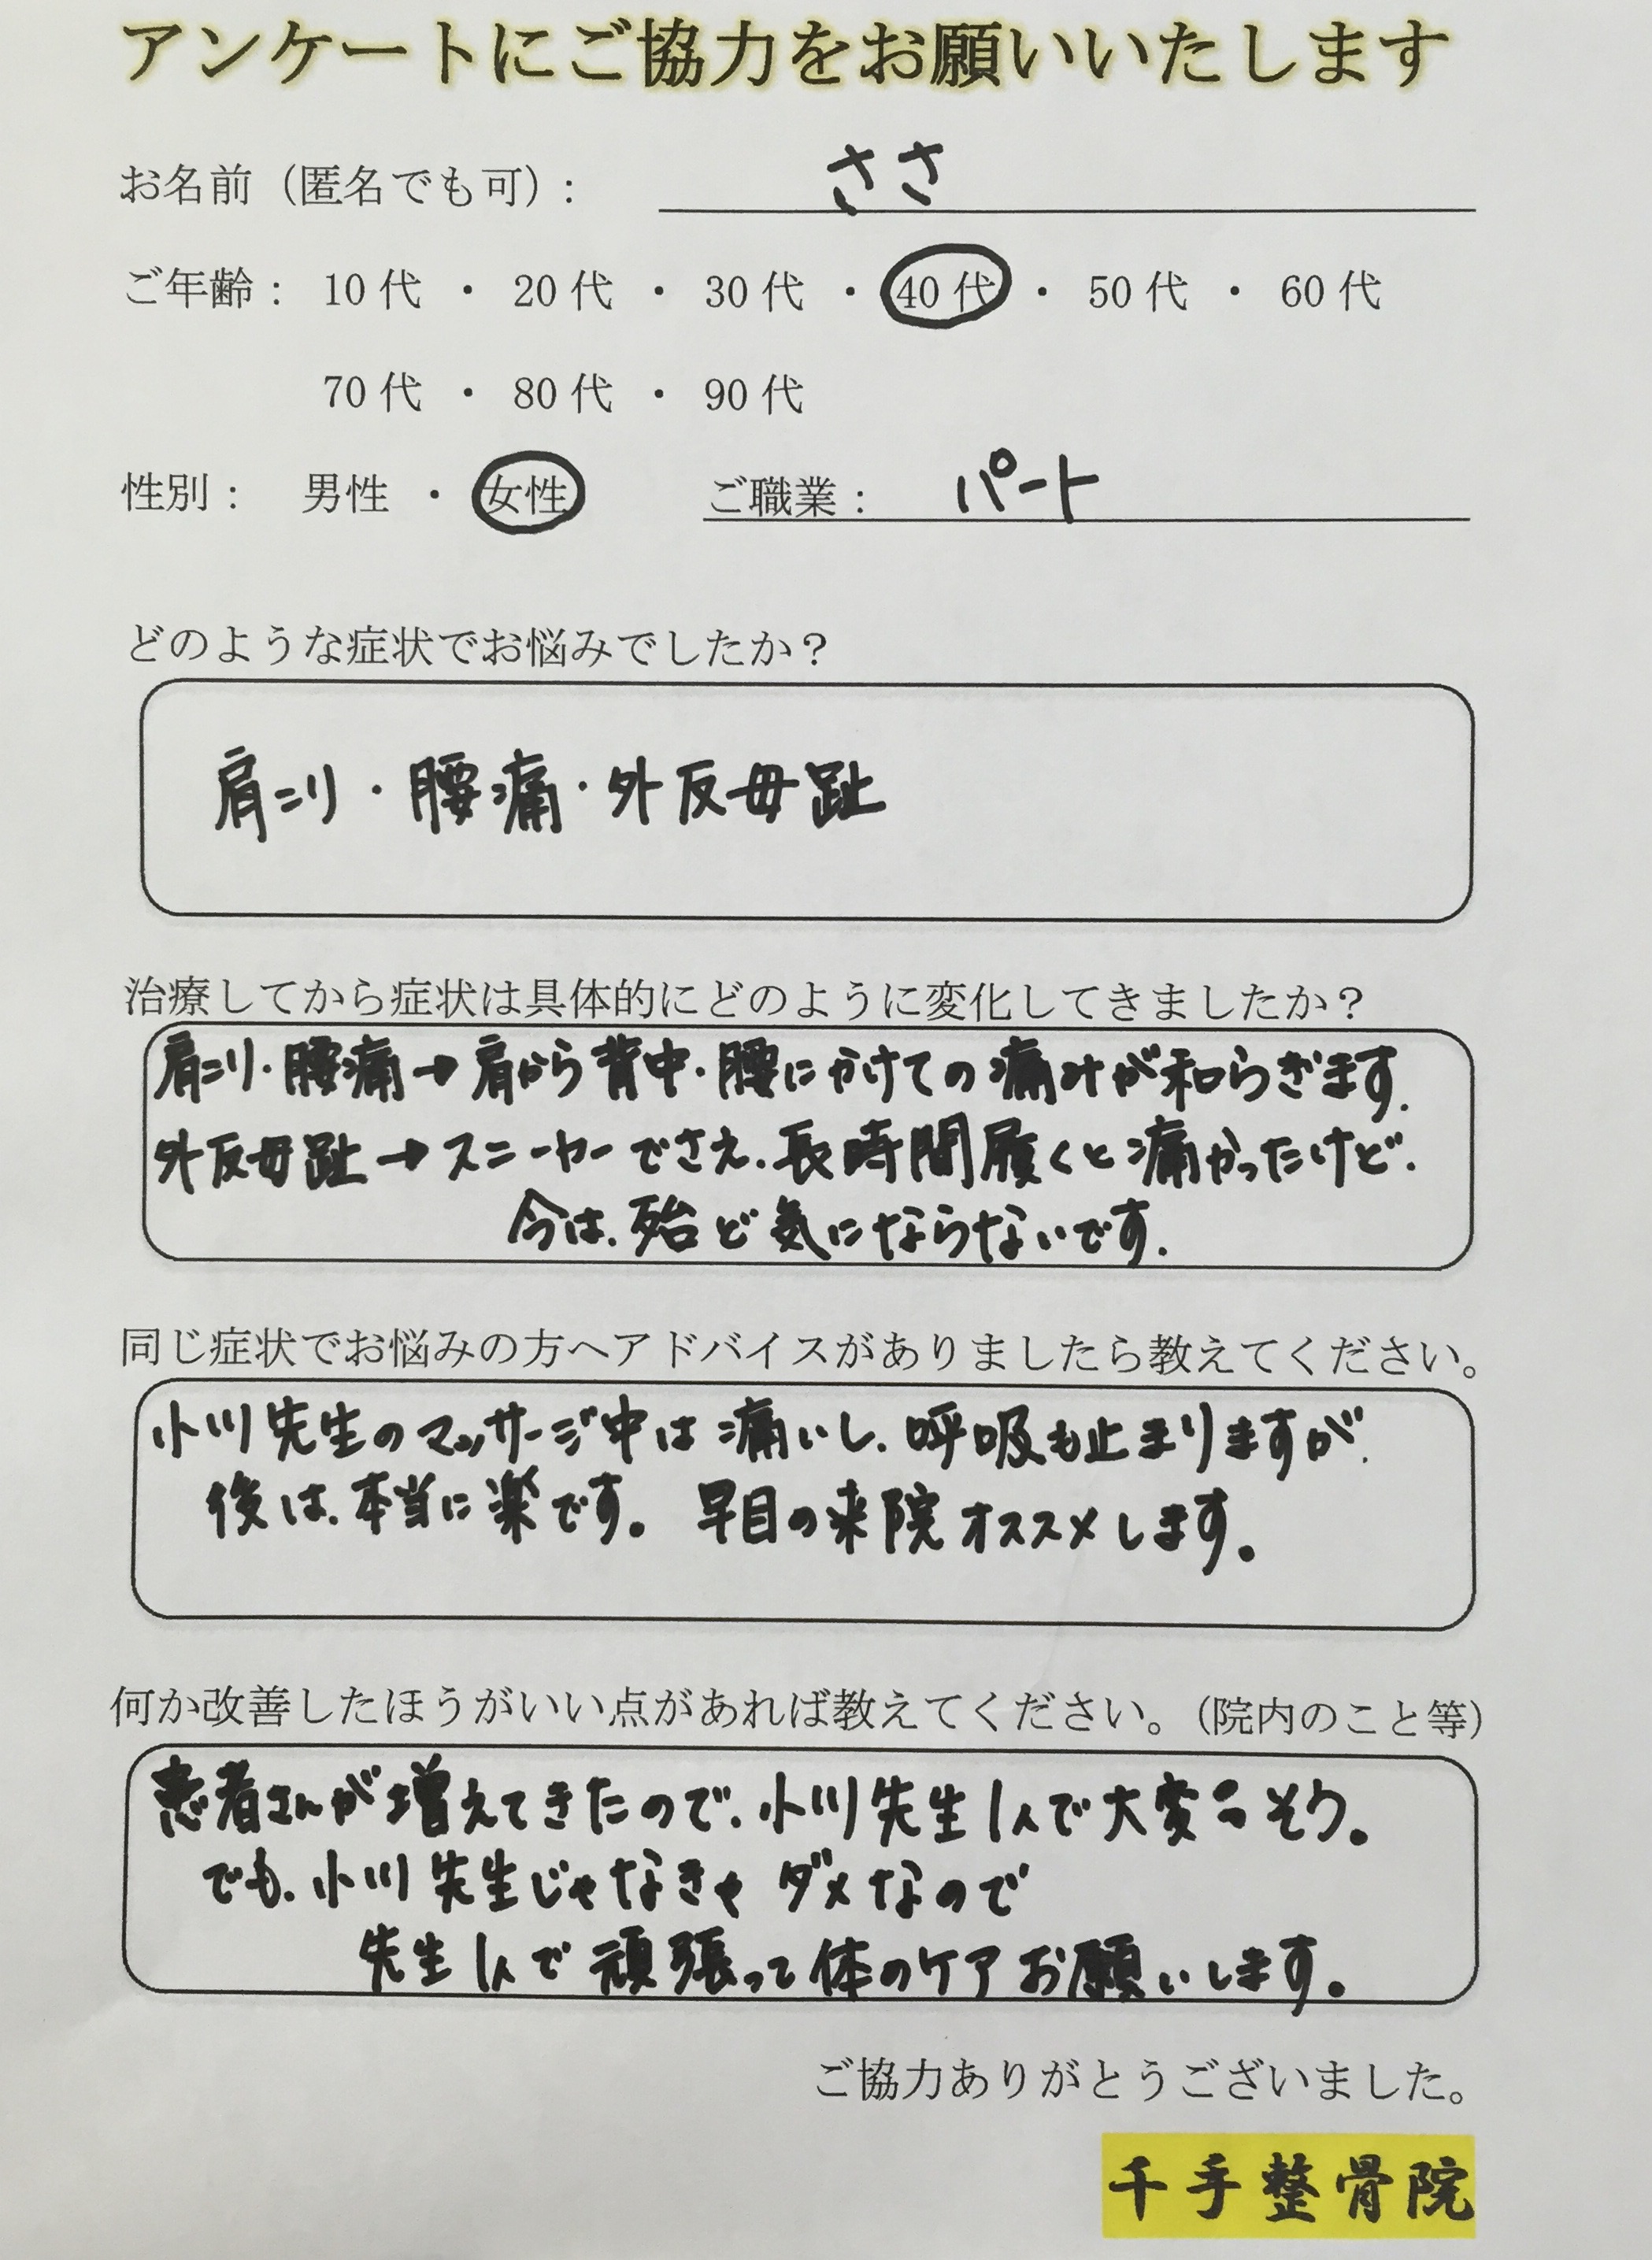 アンケートにご協力をお願いいたします
お名前（匿名でも可）： ささ
ご年齢： 10代 ・ 20代 ・ 30代 ・ 40代 ・ 50代 ・ 60代
70代 ・ 80代 ・ 90代
性別： 男性 ・ 女性 ご職業： パート
どのような症状でお悩みでしたか？
肩こり・腰痛・外反母趾
治療してから症状は具体的にどのように変化してきましたか？
肩こり・腰痛→肩から背中・腰にかけての痛みが和らぎます.
外反母趾→スニーヤーでさえ、長時間履くと痛かったけど.
今は、殆ど気にならないです.
同じ症状でお悩みの方へアドバイスがありましたら教えてください。
小川先生のマッサージ中は痛いし、呼吸も止まりますが.
後は、本当に楽です。 早目の来院オススメします。
何か改善したほうがいい点があれば教えてください。（院内のこと等）
患者さんが増えてきたので、小川先生1人で大変そう。
でも、小川先生じゃなきゃダメなので
先生1人で頑張って体のケアお願いします。
ご協力ありがとうございました。
千手整骨院